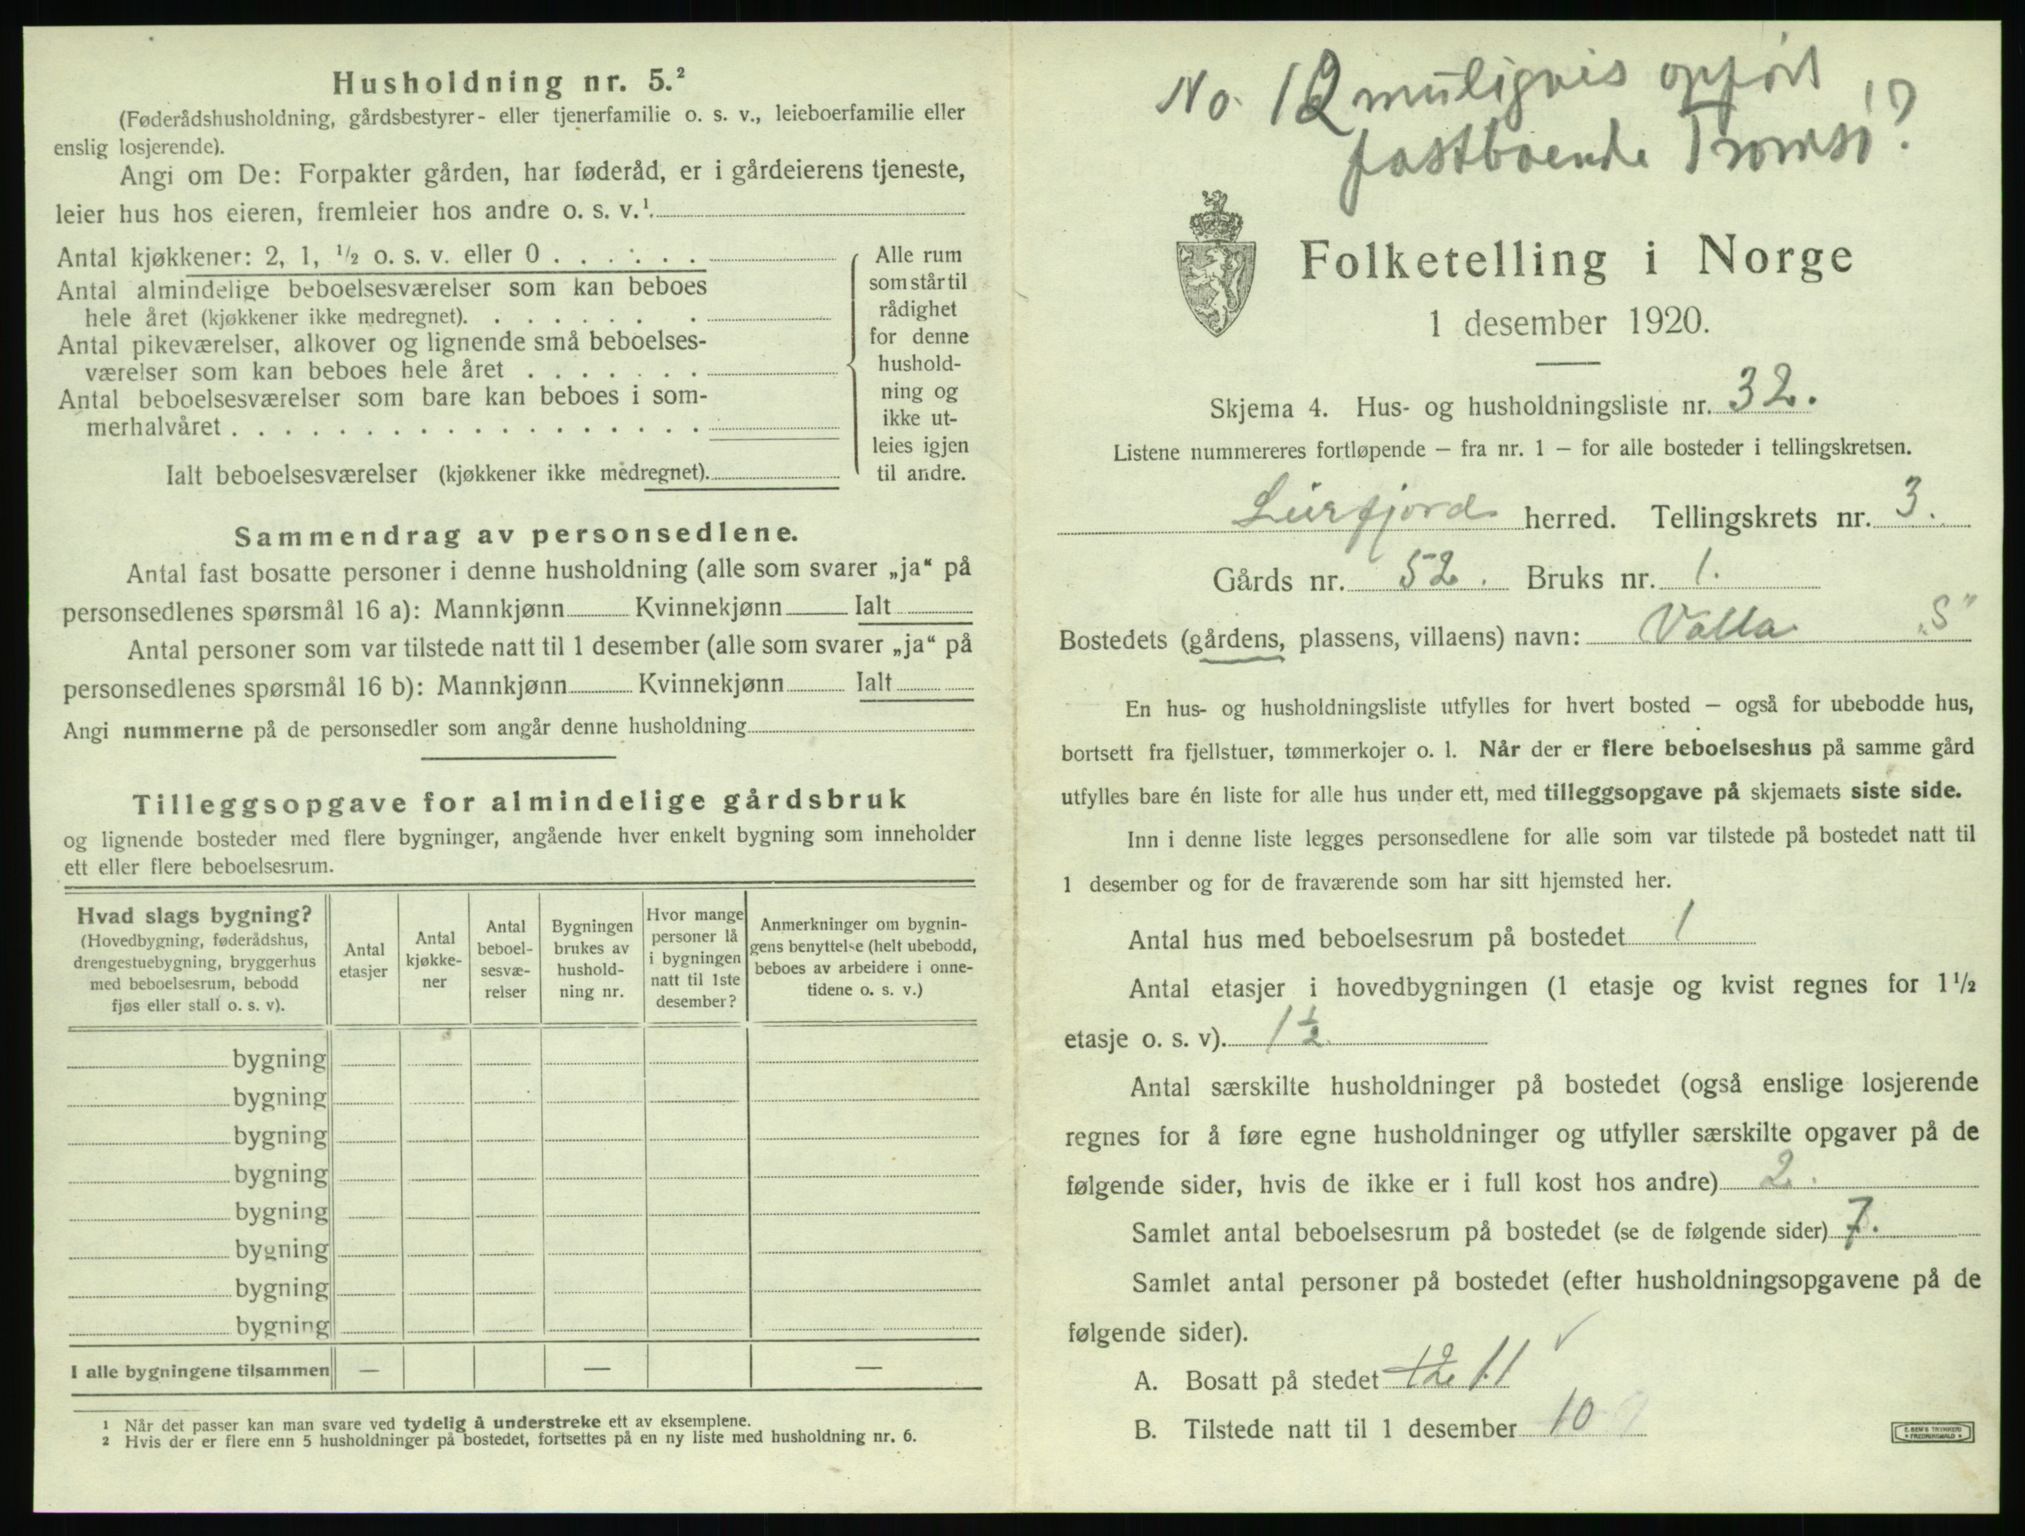 Husholdning nr. 5.²
(Føderådshusholdning, gårdsbestyrer- eller tjenerfamilie o. s. v., leieboerfamilie eller
enslig losjerende).
Angi om De: Forpakter gården, har føderåd, er i gårdeierens tjeneste,
leier hus hos eieren, fremleier hos andre o. s. v.¹
Antal kjøkkener: 2, 1, ½ o. s. v. eller 0 . . . . . .
Antal almindelige beboelsesværelser som kan beboes
hele året (kjøkkener ikke medregnet). . . . . . . .
Antal pikeværelser, alkover og lignende små beboelses-
værelser som kan beboes hele året . . . . . . .
Antal beboelsesværelser som bare kan beboes i som-
merhalvåret . . . . . . . . . . . . . . . . . .
Ialt beboelsesværelser (kjøkkener ikke medregnet).
Alle rum
som står til
rådighet
for denne
hushold-
ning og
ikke ut-
leies igjen
til andre.
Sammendrag av personsedlene.
Antal fast bosatte personer i denne husholdning (alle som svarer „ja“ på
personsedlenes spørsmål 16 a): Mannkjønn Kvinnekjønn Ialt
Antal personer som var tilstede natt til 1 desember (alle som svarer „ja“ på
personsedlenes spørsmål 16 b): Mannkjønn Kvinnekjønn Ialt
Angi nummerne på de personsedler som angår denne husholdning
Tilleggsopgave for almindelige gårdsbruk
og lignende bosteder med flere bygninger, angående hver enkelt bygning som inneholder
ett eller flere beboelsesrum.
Hvad slags bygning?
(Hovedbygning, føderådshus,
drengestuebygning, bryggerhus
med beboelsesrum, bebodd
fjøs eller stall o. s. v).
Antal
etasjer
Antal
kjøkke-
ner
Antal
beboel-
sesvæ-
relser
Bygningen
brukes av
hushold-
ning nr.
Hvor mange
personer lå
i bygningen
natt til 1ste
desember?
Anmerkninger om bygnin-
gens benyttelse (helt ubebodd,
beboes av arbeidere i onne-
tidene o. s. v.)
bygning
bygning
bygning
bygning
bygning
bygning
bygning
bygning
I alle bygningene tilsammen — — —
¹ Når det passer kan man svare ved tydelig å understreke ett av eksemplene.
² Hvis der er flere enn 5 husholdninger på bostedet, fortsettes på en ny liste med husholdning nr. 6.
No. 12 muligvis opført
fastboende Tromsø!?
Folketelling i Norge
1 desember 1920.
Skjema 4. Hus- og husholdningsliste nr. 32.
Listene nummereres fortløpende — fra nr. 1 — for alle bosteder i tellingskretsen.
Leirfjord herred. Tellingskrets nr. 3.
Gårds nr. 52. Bruks nr. 1.
Bostedets (gårdens, plassens, villaens) navn: Valla „S”
En hus- og husholdningsliste utfylles for hvert bosted — også for ubebodde hus,
bortsett fra fjellstuer, tømmerkojer o. l. Når der er flere beboelseshus på samme gård
utfylles bare én liste for alle hus under ett, med tilleggsopgave på skjemaets siste side.
Inn i denne liste legges personsedlene for alle som var tilstede på bostedet natt til
1 desember og for de fraværende som har sitt hjemsted her.
Antal hus med beboelsesrum på bostedet 1
Antal etasjer i hovedbygningen (1 etasje og kvist regnes for 1½
etasje o. s. v). 1½
Antal særskilte husholdninger på bostedet (også enslige losjerende
regnes for å føre egne husholdninger og utfyller særskilte opgaver på de
følgende sider, hvis de ikke er i full kost hos andre) 2.
Samlet antal beboelsesrum på bostedet (se de følgende sider) 7.
Samlet antal personer på bostedet (efter husholdningsopgavene på de
følgende sider).
A. Bosatt på stedet 12 11
B. Tilstede natt til 1 desember 10